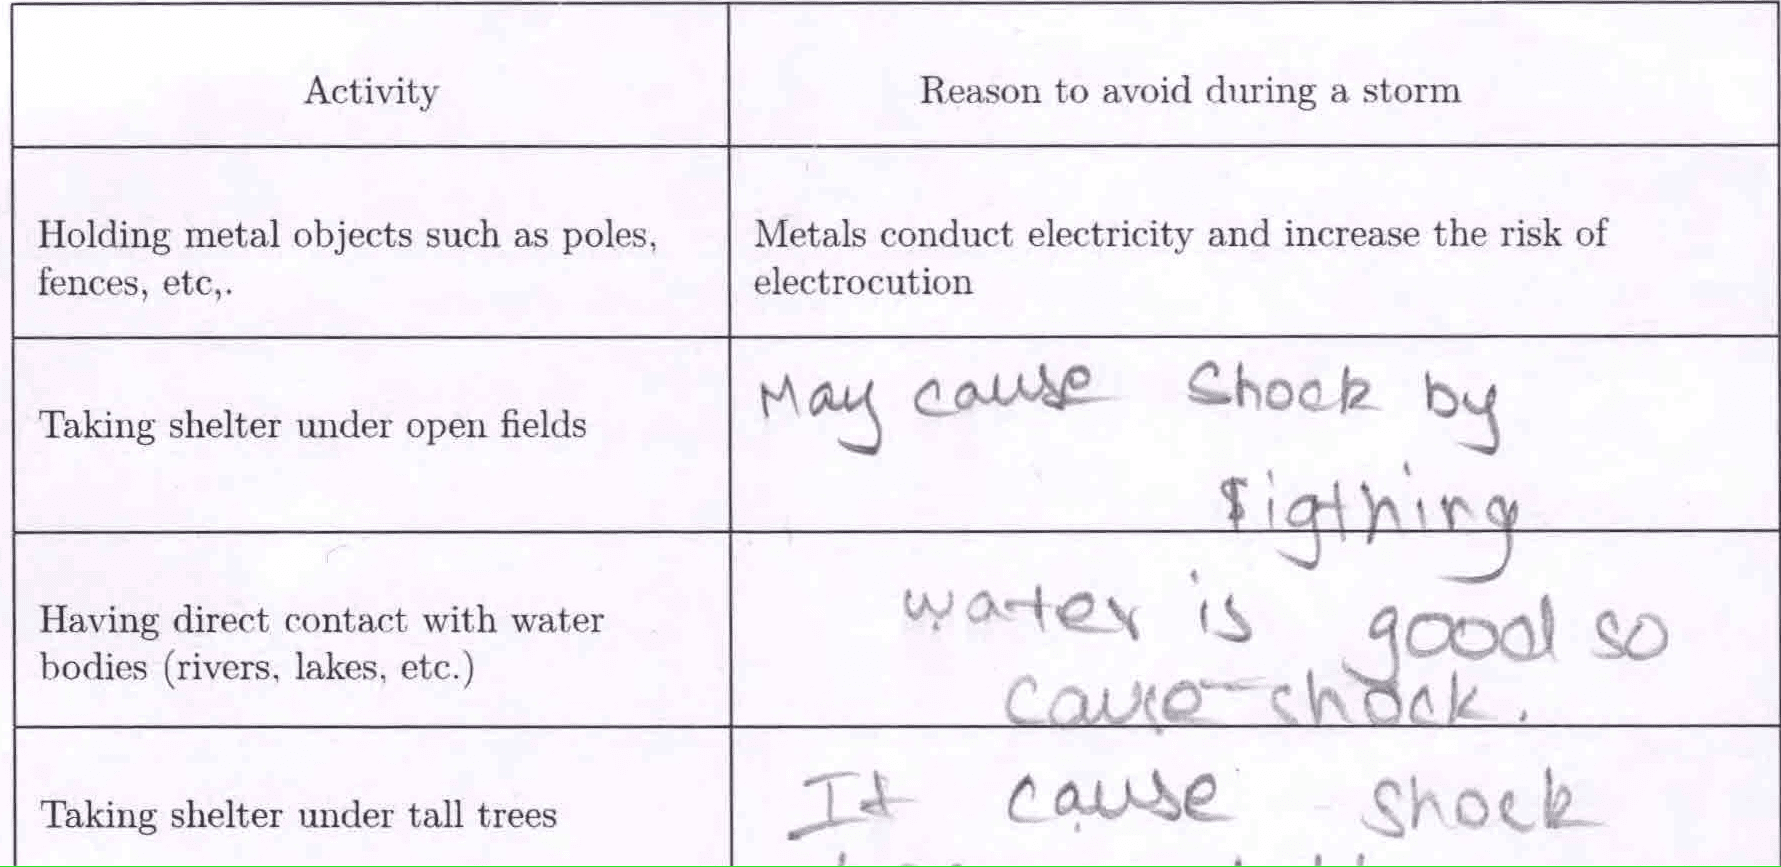 Activity
Reason to avoid during a storm
Holding metal objects such as poles,
fences, etc,.
Metals conduct electricity and increase the risk of
electrocution
Taking shelter under open fields
May cause shock by
ligthing
Having direct contact with water
bodies (rivers, lakes, etc.)
water is good so
cause shock.
Taking shelter under tall trees
It cause shock